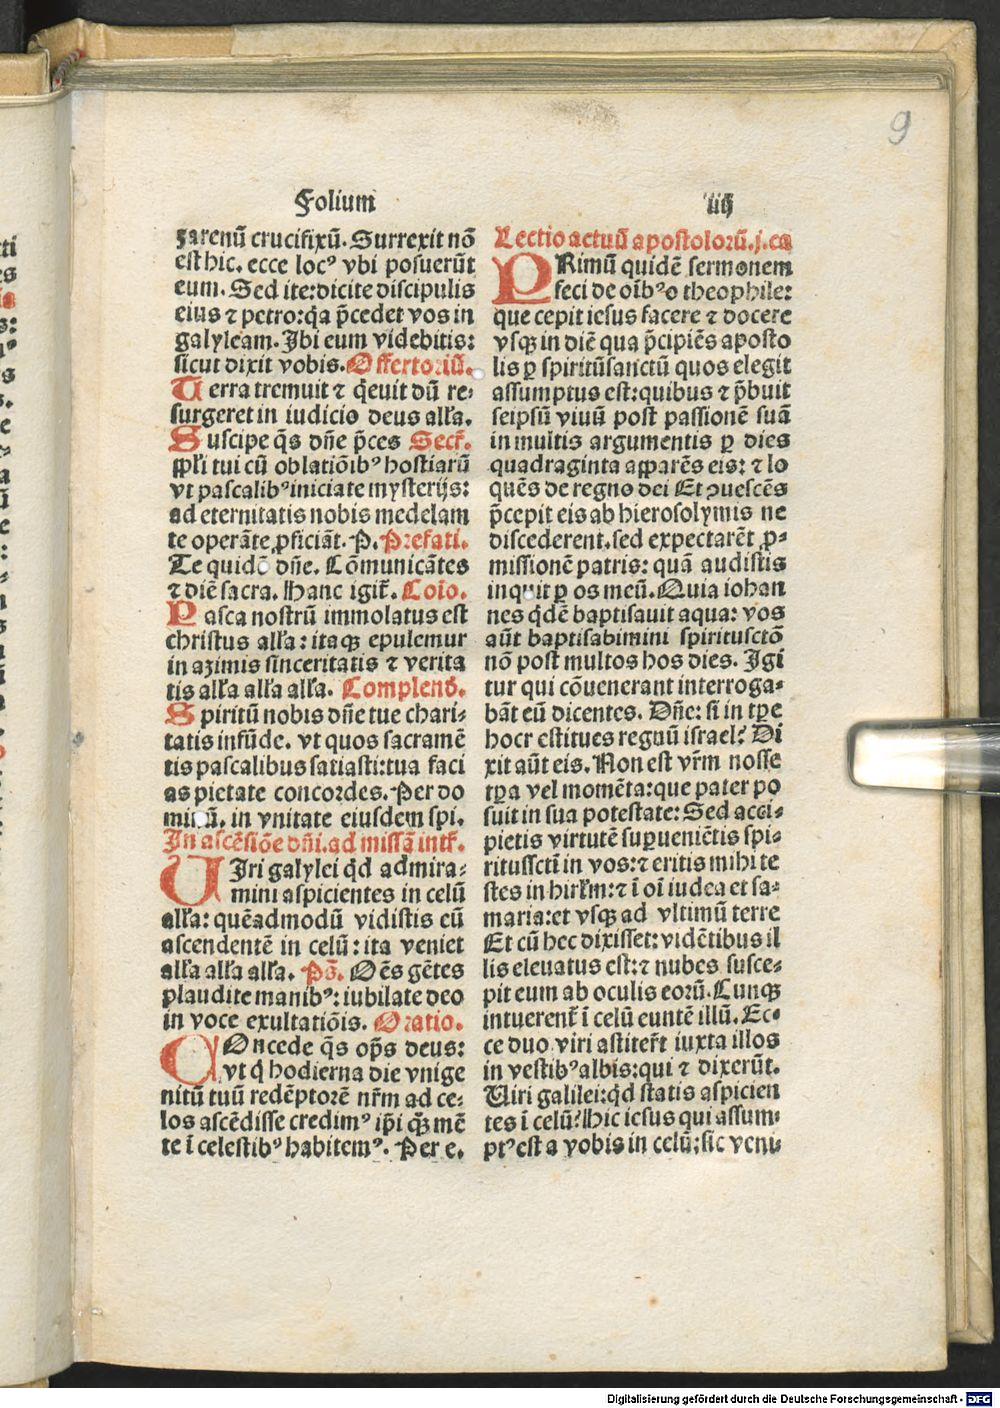 9
Folium iiij
zarenū crucifixū. Surrexit nō
est hic. ecce locꝰ vbi posuerūt
eum. Sed ite: dicite discipulis
eius ⁊ petro: q̇a p̄cedet vos in
galyleam. Ibi eum videbitis:
sicut dixit vobis. Offertoriū.
Terra tremuit ⁊ q̇euit dū re-
surgeret in iudicio deus all'a.
Suscipe q̄s dn̄e p̄ces Secr̄.
ppl'i tui cū oblatiōibꝰ hostiarū
vt pascalibꝰ iniciate mysterijs:
ad eternitatis nobis medelam
te operāte ꝓficiāt. P. Prefati.
Te quidē dn̄e. Cōmunicātes
⁊ diē sacra. Hanc igit̄. Cōio.
Pasca nostrū immolatus est
christus all'a: itaqꝫ epulemur
in azimis sinceritatis ⁊ verita
tis all'a all'a all'a. Complend̄.
Spiritū nobis dn̄e tue chari-
tatis infūde. vt quos sacramē
tis pascalibus satiasti: tua faci
as pietate concordes. Per do
minū. in vnitate eiusdem spi.
In ascēsiōe dn̄i. ad missā intr̄.
VIri galylei q̇d admira-
mini aspicientes in celū
all'a: quēadmodū vidistis eū
ascendentē in celū: ita veniet
all'a all'a all'a. Ps̄. Oēs gētes
plaudite manibꝰ: iubilate deo
in voce exultatiōis. Oratio.
COncede q̄s op̄s deus:
vt q̇ hodierna die vnige
nitū tuū redēptorē nr̄m ad ce-
los ascēdisse credimꝰ ip̄i qꝫ mē
te ī celestibꝰ habitemꝰ. Per e.
Lectio actuū apostolorū. j. ca
PRimū quidē sermonem
feci de oībꝰ o theophile:
que cepit iesus facere ⁊ docere
vsqꝫ in diē qua p̄cipiēs aposto
lis ꝑ spiritūsanctū quos elegit
assumptus est: quibus ⁊ p̄buit
seipsū viuū post passionē suā
in multis argumentis ꝑ dies
quadraginta apparēs eis: ⁊ lo
quēs de regno dei Et ꝯuescēs
p̄cepit eis ab hierosolymis ne
discederent. sed expectarēt ꝓ-
missionē patris: quā audistis
inquit ꝑ os meū. Quia iohan
nes q̇dē baptisauit aqua: vos
aūt baptisabimini spiritusctō
nō post multos hos dies. Igi
tur qui cōuenerant interroga-
bāt eū dicentes. Dn̄e: si in tꝑe
hocr estitues regnū israel? Di
xit aūt eis. Non est vr̄m nosse
tꝑa vel momēta: que pater po
suit in sua potestate: Sed acci-
pietis virtutē suꝑueniētis spi-
ritussctī in vos: ⁊ eritis mihi te
stes in hirl'm: ⁊ ī oī iudea et sa-
maria: et vsqꝫ ad vltimū terre
Et cū hec dixisset: vidētibus il
lis eleuatus est: ⁊ nubes susce-
pit eum ab oculis eorū. Cunqꝫ
intuerent̄ ī celū euntē illū. Ec-
ce duo viri astiter̄t iuxta illos
in vestibꝰ albis: qui ⁊ dixerūt.
Viri galilei: q̇d statis aspicien
tes ī celū? Hic iesus qui assum-
ptꝰ est a vobis in celū: sic veni-
Digitalisierung gefördert durch die Deutsche Forschungsgemeinschaft - DFG